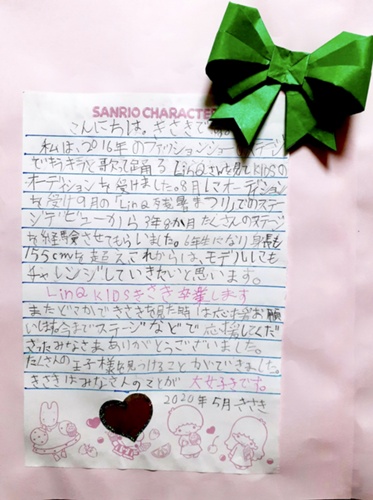 SANRIO CHARACTER
こんにちは。きさきです。
私は、2016年のファッションショーステージ
でキラキラと歌って踊るLinQさんを見てKIDSの
オーディションを受けました。8月にオーディション
を受け9月の「LinQ を まつり」でのステー
ジデビューから3年8か月たくさんのステージ
を経験させてもらいました。6年生になり身長も
155cmを超え、これからは、モデルにも
チャレンジしていきたいと思います。
LinQ KIDSきさき卒業します
またどこかできさきを見た時は応援お願
いします今までステージなどで応援してくだ
さったみなさまありがとうございました。
たくさんの王子様を見つけることができました。
きさきはみなさんのことが 大好きです。
2020年5月 きさき